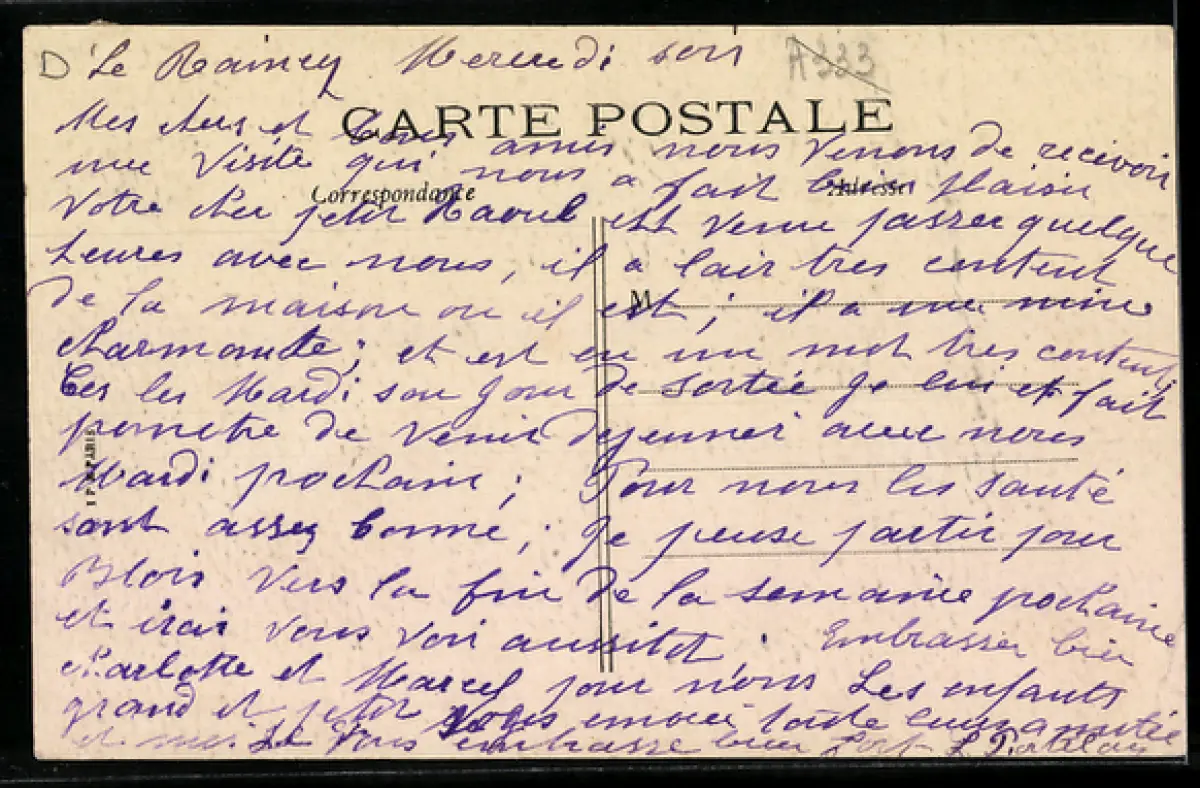 D Le Raincy Mercredi soir A333
CARTE POSTALE
Mes chers et bons amis nous venons de recevoir
une visite qui nous a fait bien plaisir
Correspondance Adresse
Votre cher petit Raoul est venu passer quelque
heures avec nous, il a lair tres content
de la maison ou il est ; il a une mine
M
charmante ; et est en un mot tres content
Ces les Mardi son jour de sortie je lui et fait
prometre de venir dejeuner avec nous
Mardi prochain ; Pour nous les santé
sont assez bonne ; je pense partir pour
Blois vers la fin de la semaine prochaine
et irai vous voir aussitot. Embrasser bien
Charlotte et Marcel pour nous Les enfants
grand et petit vous envoie toute leurs amitié
et moi je vous embrasse bien fort L.
PARIS